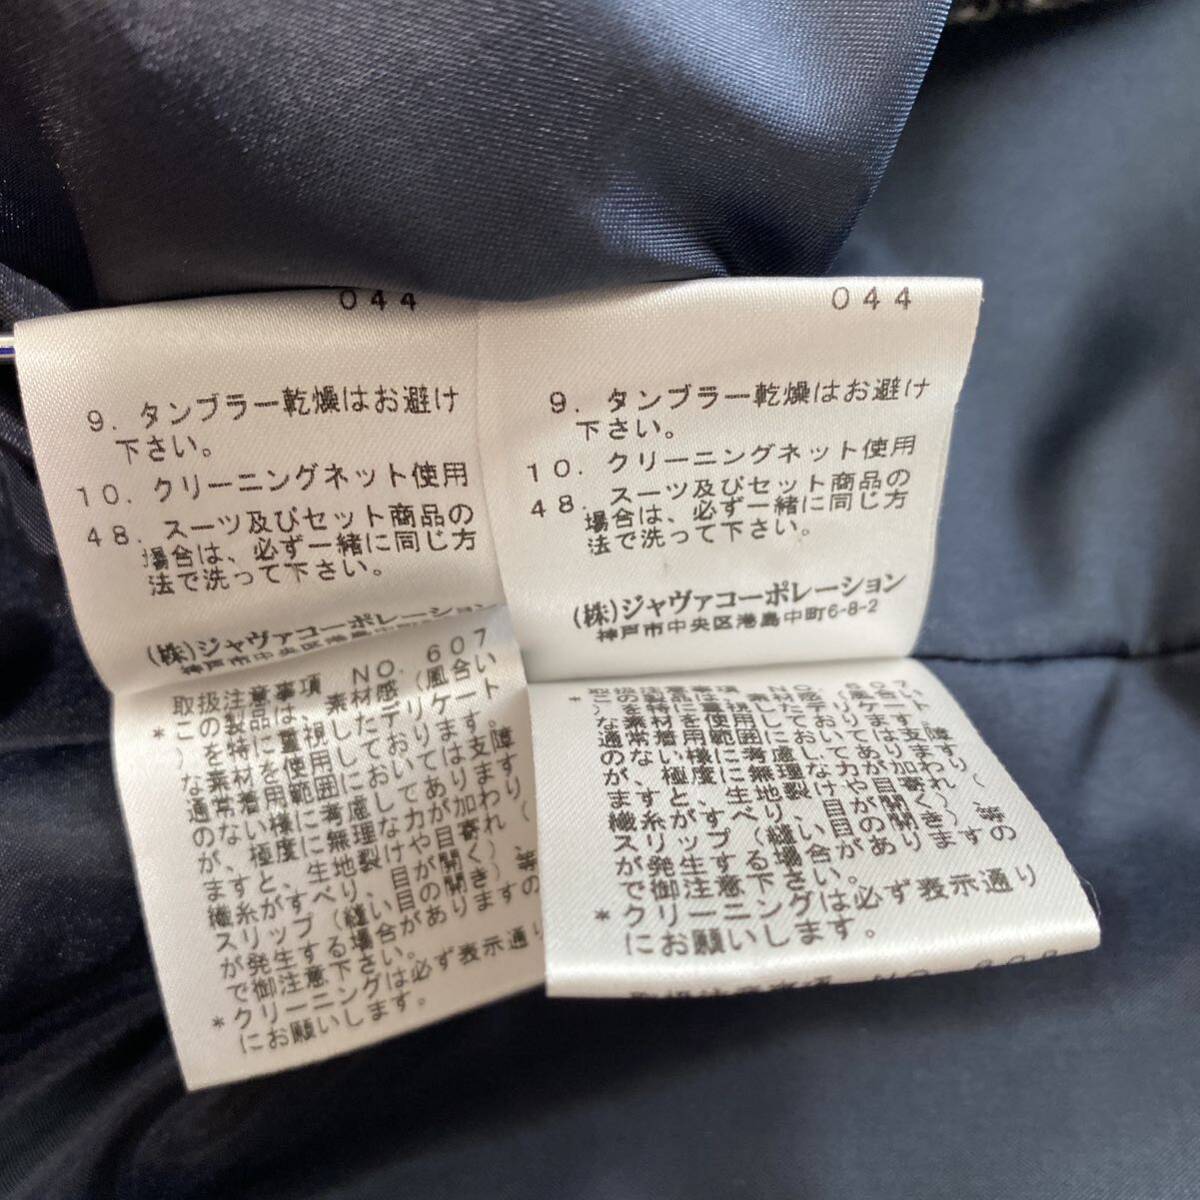 044
9. タンブラー乾燥はお避け
下さい。
10. クリーニングネット使用
48. スーツ及びセット商品の
場合は、必ず一緒に同じ方
法で洗って下さい。
(株)ジャヴァコーポレーション
神戸市中央区港島中町
取扱注意事項 NO. 607
*この製品は、素材感(風合い
)を特に重視したデリケート
な素材を使用しております。
通常着用範囲においては支障
のない様に考慮してあります
が、極度に無理な力が加わり
ますと、生地裂けや目寄れ(
織糸がすべり、目が開く)、
スリップ(縫い目の開き)等
が発生する場合がありますの
で御注意下さい。
*クリーニングは必ず表示通り
にお願いします。
044
9. タンブラー乾燥はお避け
下さい。
10. クリーニングネット使用
48. スーツ及びセット商品の
場合は、必ず一緒に同じ方
法で洗って下さい。
(株)ジャヴァコーポレーション
神戸市中央区港島中町6-8-2
な素材を使用しております。
通常着用範囲においては支障
のない様に考慮してあります
が、極度に無理な力が加わり
ますと、生地裂けや目寄れ(
織糸がすべり、目が開く)、
スリップ(縫い目の開き)等
が発生する場合がありますの
で御注意下さい。
*クリーニングは必ず表示通り
にお願いします。